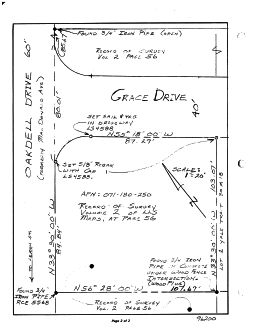 FOUND 3/4" IRON PIPE (OPEN)
RECORD OF SURVEY
VOL 2 PAGE 56
OAKDELL DRIVE
60'
80.01'
GRACE DRIVE
40'
SET NAIL & TAG
IN DRIVEWAY
LS4588
N 55° 18' 00 W
87.27'
SET 5/8" REBAR
WITH CAP
LS4588
SCALE:
1"=20'
APN: 071-180-250
RECORD OF SURVEY
VOLUME 2 OF LLS
MAPS, AT PAGE 56
103.07'
N 33° 30' 00 W
84.84'
FOUND 3/4" IRON
PIPE IN CONCRETE
UNDER WOOD FENCE
INTERSECTION
FOUND 3/4"
IRON PIPE
RCE 5568
N 56° 28' 00 W
107.67'
RECORD OF SURVEY
VOL. 2 PAGE 56
Page 2 of 2